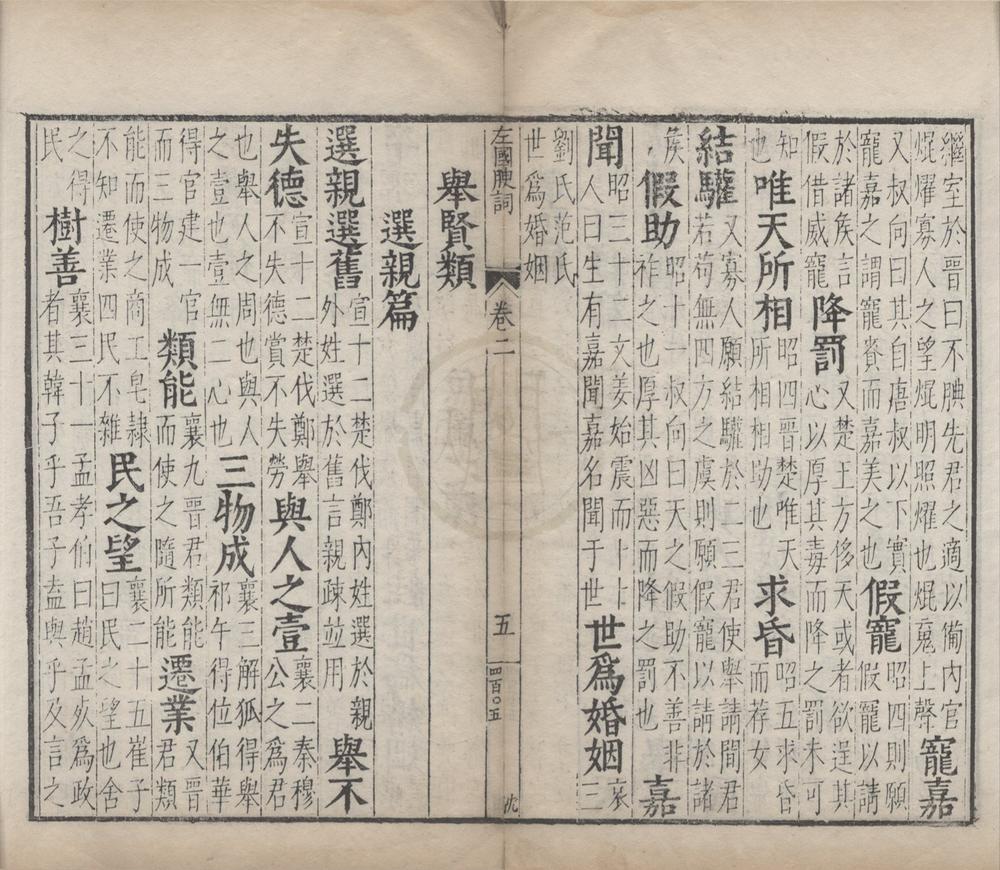 繼室於晉曰不腆先君之適以備內官
焜燿寡人之望焜明照燿也焜䰟上聲
寵嘉
又叔向曰其自唐叔以下實
寵嘉之謂寵賚而嘉美之也
假寵
昭四則願
假寵以請
於諸矦言
假借威寵
降罰
又楚王方侈天或者欲逞其
心以厚其毒而降之罰未可
知
也
唯天所相
昭四晉楚唯天
所相相助也
求昏
昭五求昏
而荐女
結驩
又寡人願結驩於二三君使舉請間君
若苟無四方之虞則願假寵以請於諸
矦
假助
昭十一叔向曰天之假助不善非
祚之也厚其凶惡而降之罰也
嘉
聞
昭三十二文姜始震而卜卜
人曰生有嘉聞嘉名聞于世
世爲婚姻
哀
三
劉氏范氏
世爲婚姻
左國腴詞 卷二 五 四百〇五 沈
舉賢類
選親篇
選親選舊
宣十二楚伐鄭內姓選於親
外姓選於舊言親疎並用
舉不
失德
宣十二楚伐鄭舉
不失德賞不失勞
與人之壹
襄二秦穆
公之爲君
也舉人之周也與人
之壹也壹無二心也
三物成
襄三解狐得舉
祁午得位伯華
得官建一官
而三物成
類能
襄九晉君類能
而使之隨所能
遷業
又晉
君類
能而使之商工皂隷
不知遷業四民不雜
民之望
襄二十五崔子
曰民之望也舍
之得
民
樹善
襄三十一孟孝伯曰趙孟㱙爲政
者其韓子乎吾子盍與乎及言之